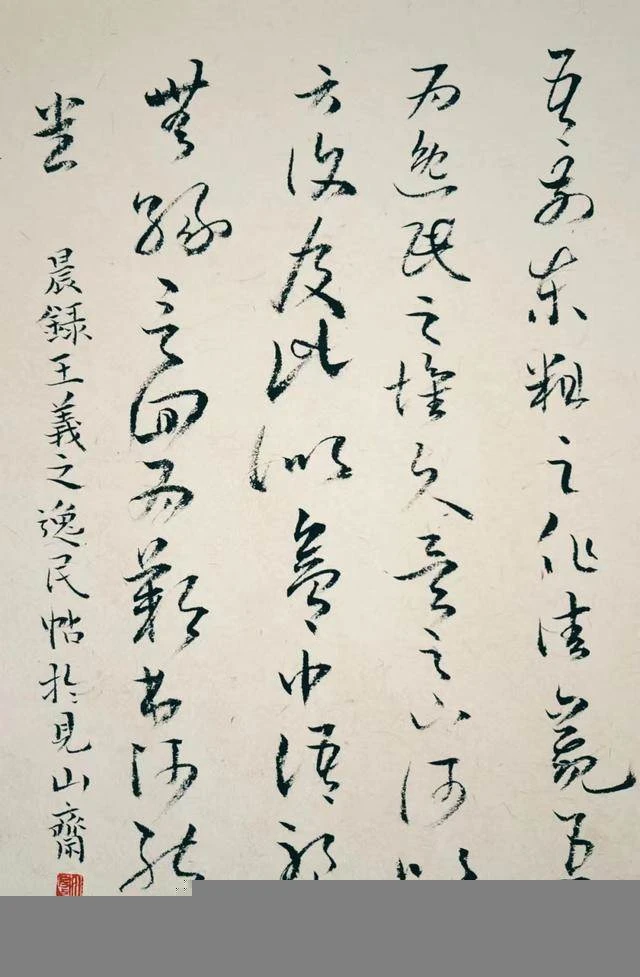 吾前東粗足作佳觀吾
為逸民之懷久矣足下何以
方復及此似夢中語耶
無緣言面為歎書何能
悉
晨錄王羲之逸民帖於見山齋